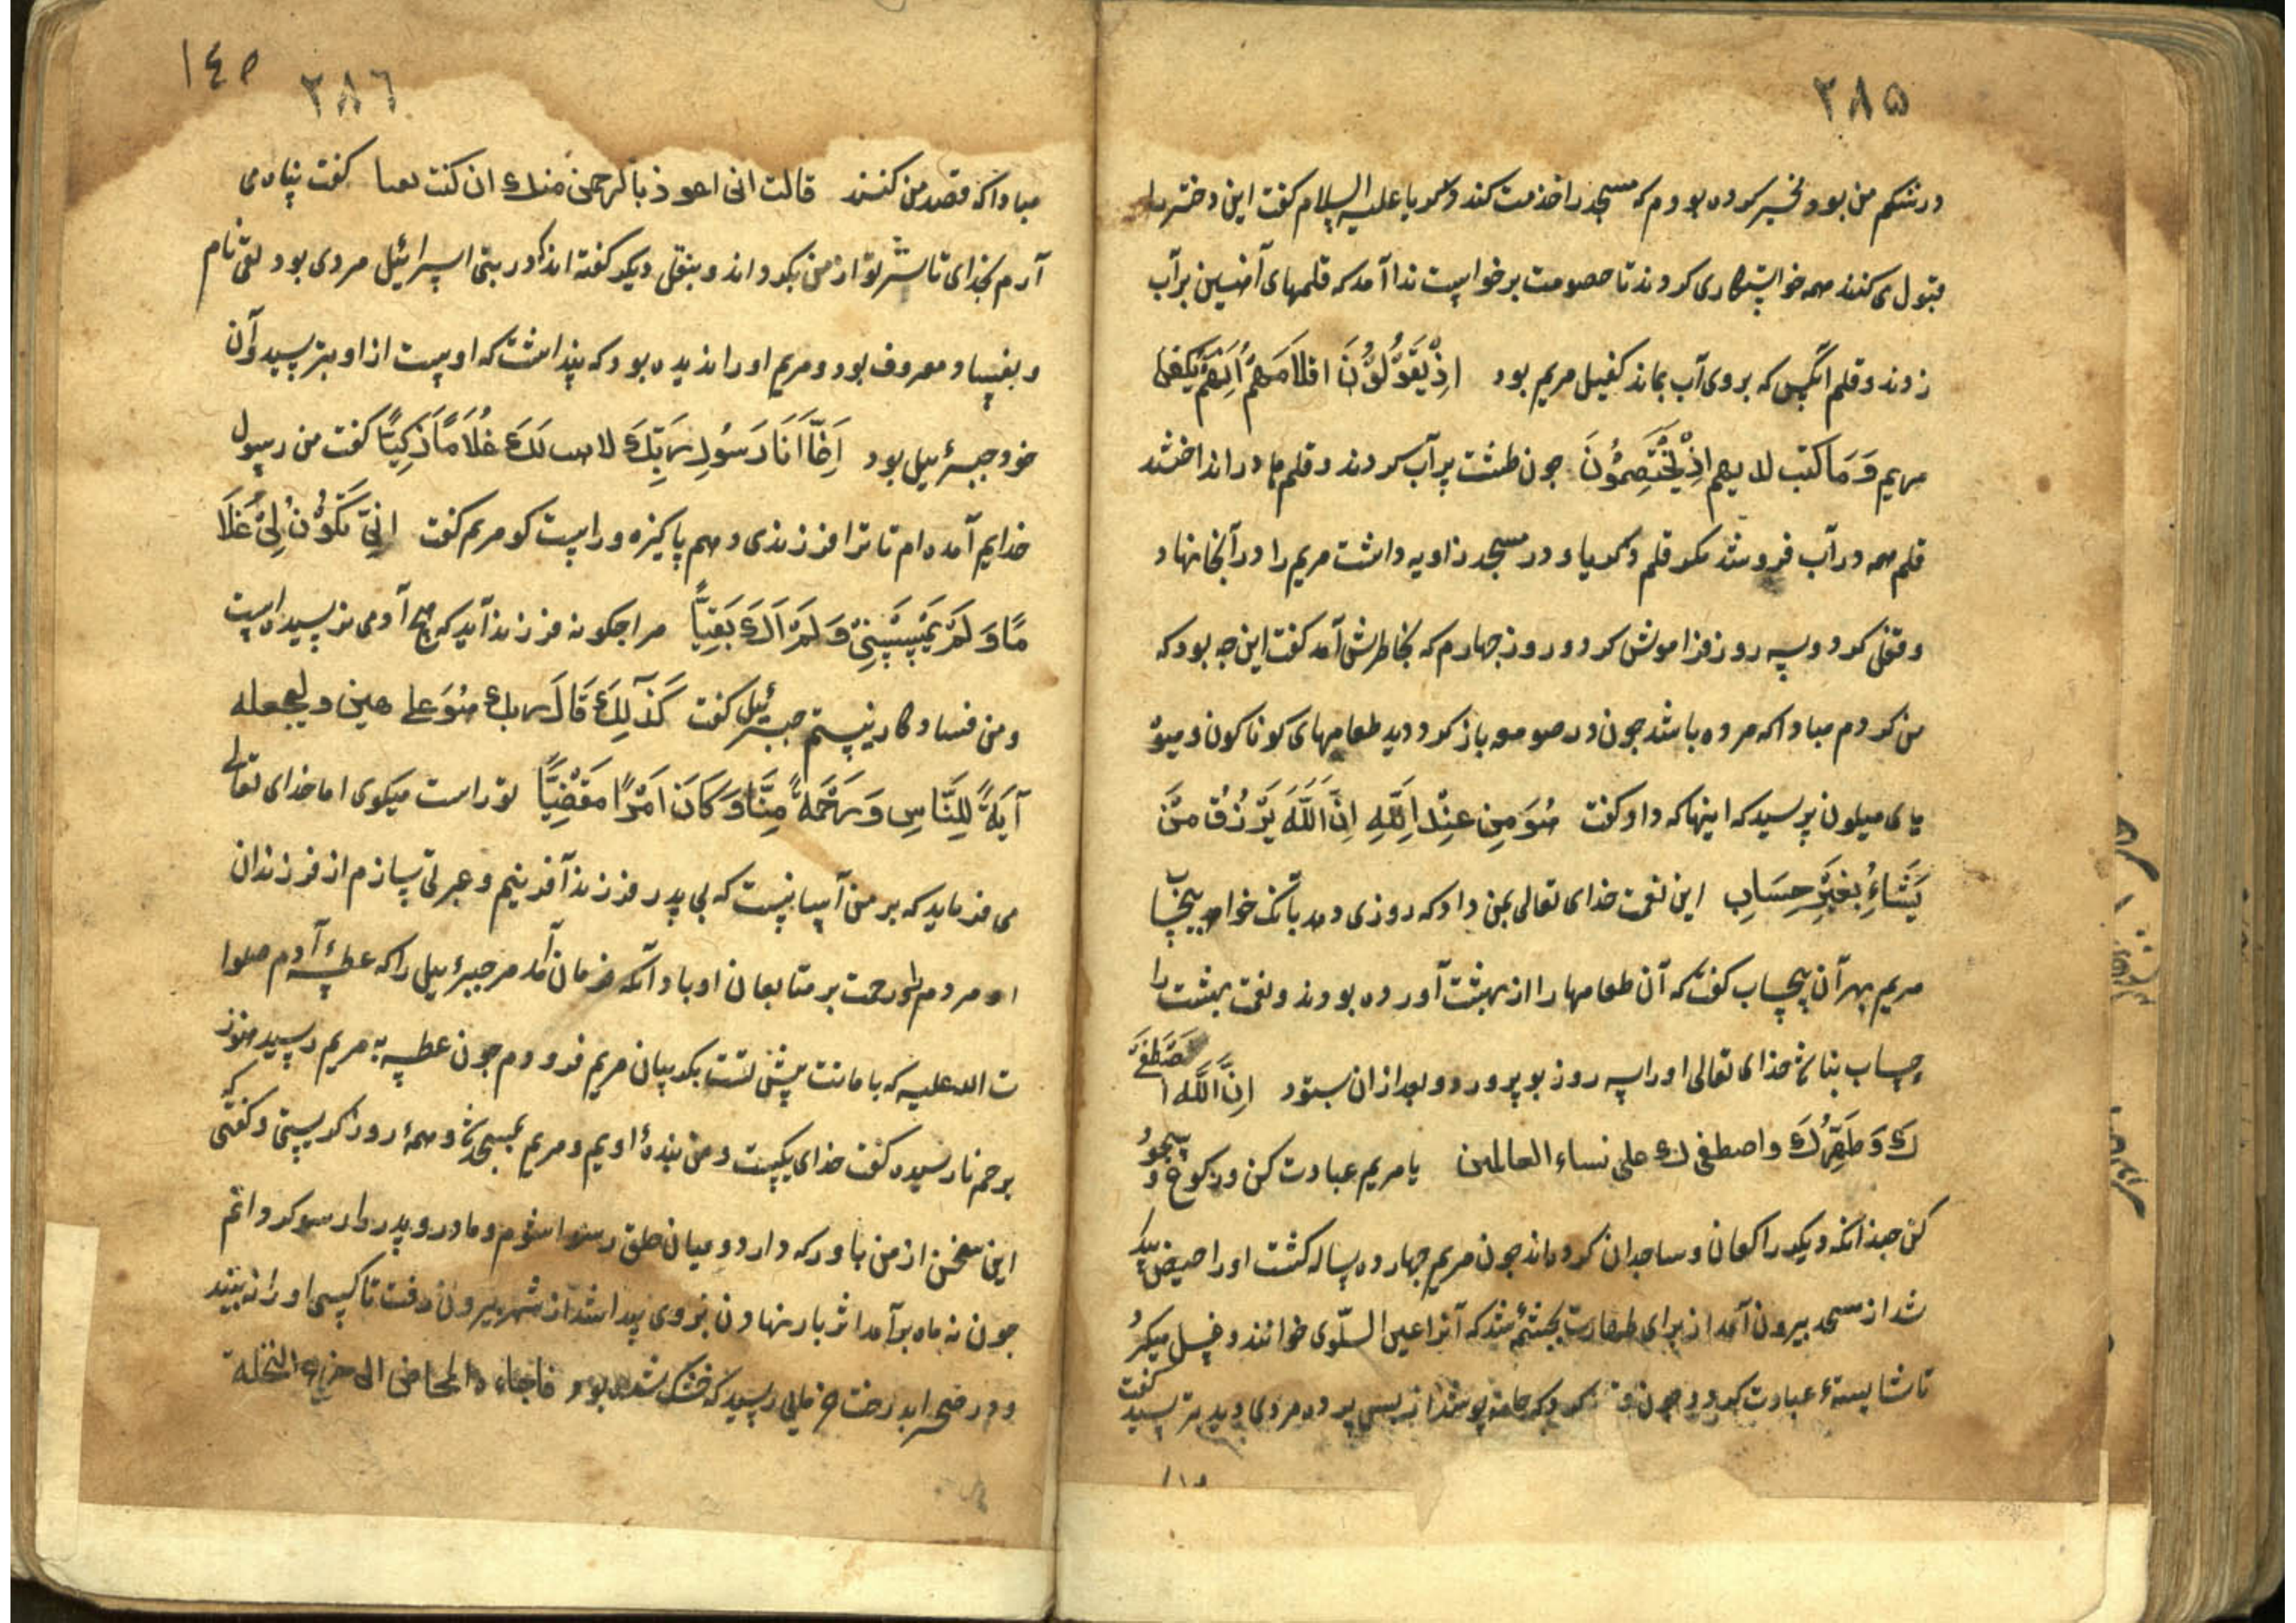 ۳۸۵
در شکم من بود و نخیر کرده بودم که مسجد را خذمت کند و زکریا علیه السلام کفت این دختر را
قبول می کنند همه خواستکاری کردند تا خصومت برخواست ندا آمد که قلمهای آهنین بر آب
زدند و قلم آنکس که بروی آب بماند کفیل مریم بود اِذْ یَقُوْلُوْنَ اقلامهم اَیُّهُمْ یَکفل
مریم وَمَا کنت لدیهم اِذْ یَخْتَصِمُوْنَ جون طشت پر آب کردند و قلم ها در انداختند
قلم همه در آب فرو شد مکر قلم زکریا و در مسجد زاویه داشت مریم را در آنجا نهاد
وقفل کرد و سه روز فراموش کرد و روز جهارم که بخاطرش آمد کفت این جه بود که
من کردم مبادا که مرده باشد جون در صومعه باز کرد دید طعامهای کوناکون و میوه
یا می میلون پرسید که اینها که داد کفت هُوَ مِن عِنْدِ اللهِ اِنَّ اللهَ یَرْزُقُ مَنْ
یَشَاءُ بِغَیْرِ حِسَابِ این نعمت خدای تعالی بمن داد که روزی دهد بآنک خواهد بیحساب
مریم بهر آن بیحساب کفت که آن طعامها را از بهشت آورده بودند و نعمت بهشت را
حساب بناشد خدای تعالی او را سه روز بو پرورد و بعد از ان ستود اِنَّ اللّٰهَ اصْطَفَ
كِ وَطَهَّرَكِ واصطفی ك علی نساء العالمین یا مریم عبادت کن و رکوع و سجود
کن جندانکه دیکر راکعان و ساجدان کرده اند جون مریم جهارده ساله کشت او را حیض
شد از مسجد بیرون آمد از برای طهارت بجشمه شد که آنرا عین السلوی خوانند و غسل میکرد
تا شایسته عبادت کردد جون کرد که جامه پوشد از پس پرده مردی دید بترسید کفت
۱۴۵ ۳۸۶
مبادا که قصد من کنند قالت انی اعوذ بالرحمن منك ان کنت تقیا کفت پناه می
آرم بخذای تا شر تو از من بکرداند و بنقل دیکر کفته اند که در بنی اسرائیل مردی بود تقی نام
و بفساد معروف بود و مریم او را ندیده بود که پنداشت که اوست از او بترسید و آن
خود جبرئیل بود اِنَّمَا اَنَا رَسُوْلُ رَبِّكِ لاهب لَكِ غُلَامًا زَكِیًّا کفت من رسول
خدایم آمده ام تا ترا فرزندی دهم پاکیزه و راست کو مریم کفت اَنّٰی یَکُوْنُ لِیْ غُلَا
مًا وَ لَمْ یَمْسَسْنِیْ وَ لَمْ اَكُ بَغِیًّا مرا جکونه فرزند آید که هیج آدمی نرسیده است
و من فساد کار نیستم جبرئیل کفت كَذٰلِكِ قَالَ ربك هُوَ علی هین ولنجعله
آیَةً لِلنَّاسِ وَرَحْمَةً مِنَّا وَ كَانَ اَمْرًا مَقْضِیًّا تو راست میکوی اما خدای تعالی
می فرماید که بر من آسانست که بی پدر فرزند آفرینم و عبرتی سازم از فرزندان
او مردم را و رحمت بر متابعان او باد آنکه فرمان آمد مر جبرئیل را که عطسهٔ آدم صلوا
ت الله علیه که بامانت پیش تست بکریبان مریم فرو دم جون عطسه به مریم رسید هنوز
برحم نارسیده کفت خدای یکیست و من بندهٔ اویم و مریم بمسجد شد و همهٔ روز کریستی و کفتی که
این سخن از من باور که دارد و میان خلق رسوا شوم و مادر و پدر را رسوا کردانم
جون نه ماه بر آمد اثر بار نهادن بروی پیدا شد از شهر بیرون رفت تا کسی او را نبیند
و در صحرا بدرخت خرمایی رسید که خشک شده بود فاجاء ها المخاض الی جذع النخلة